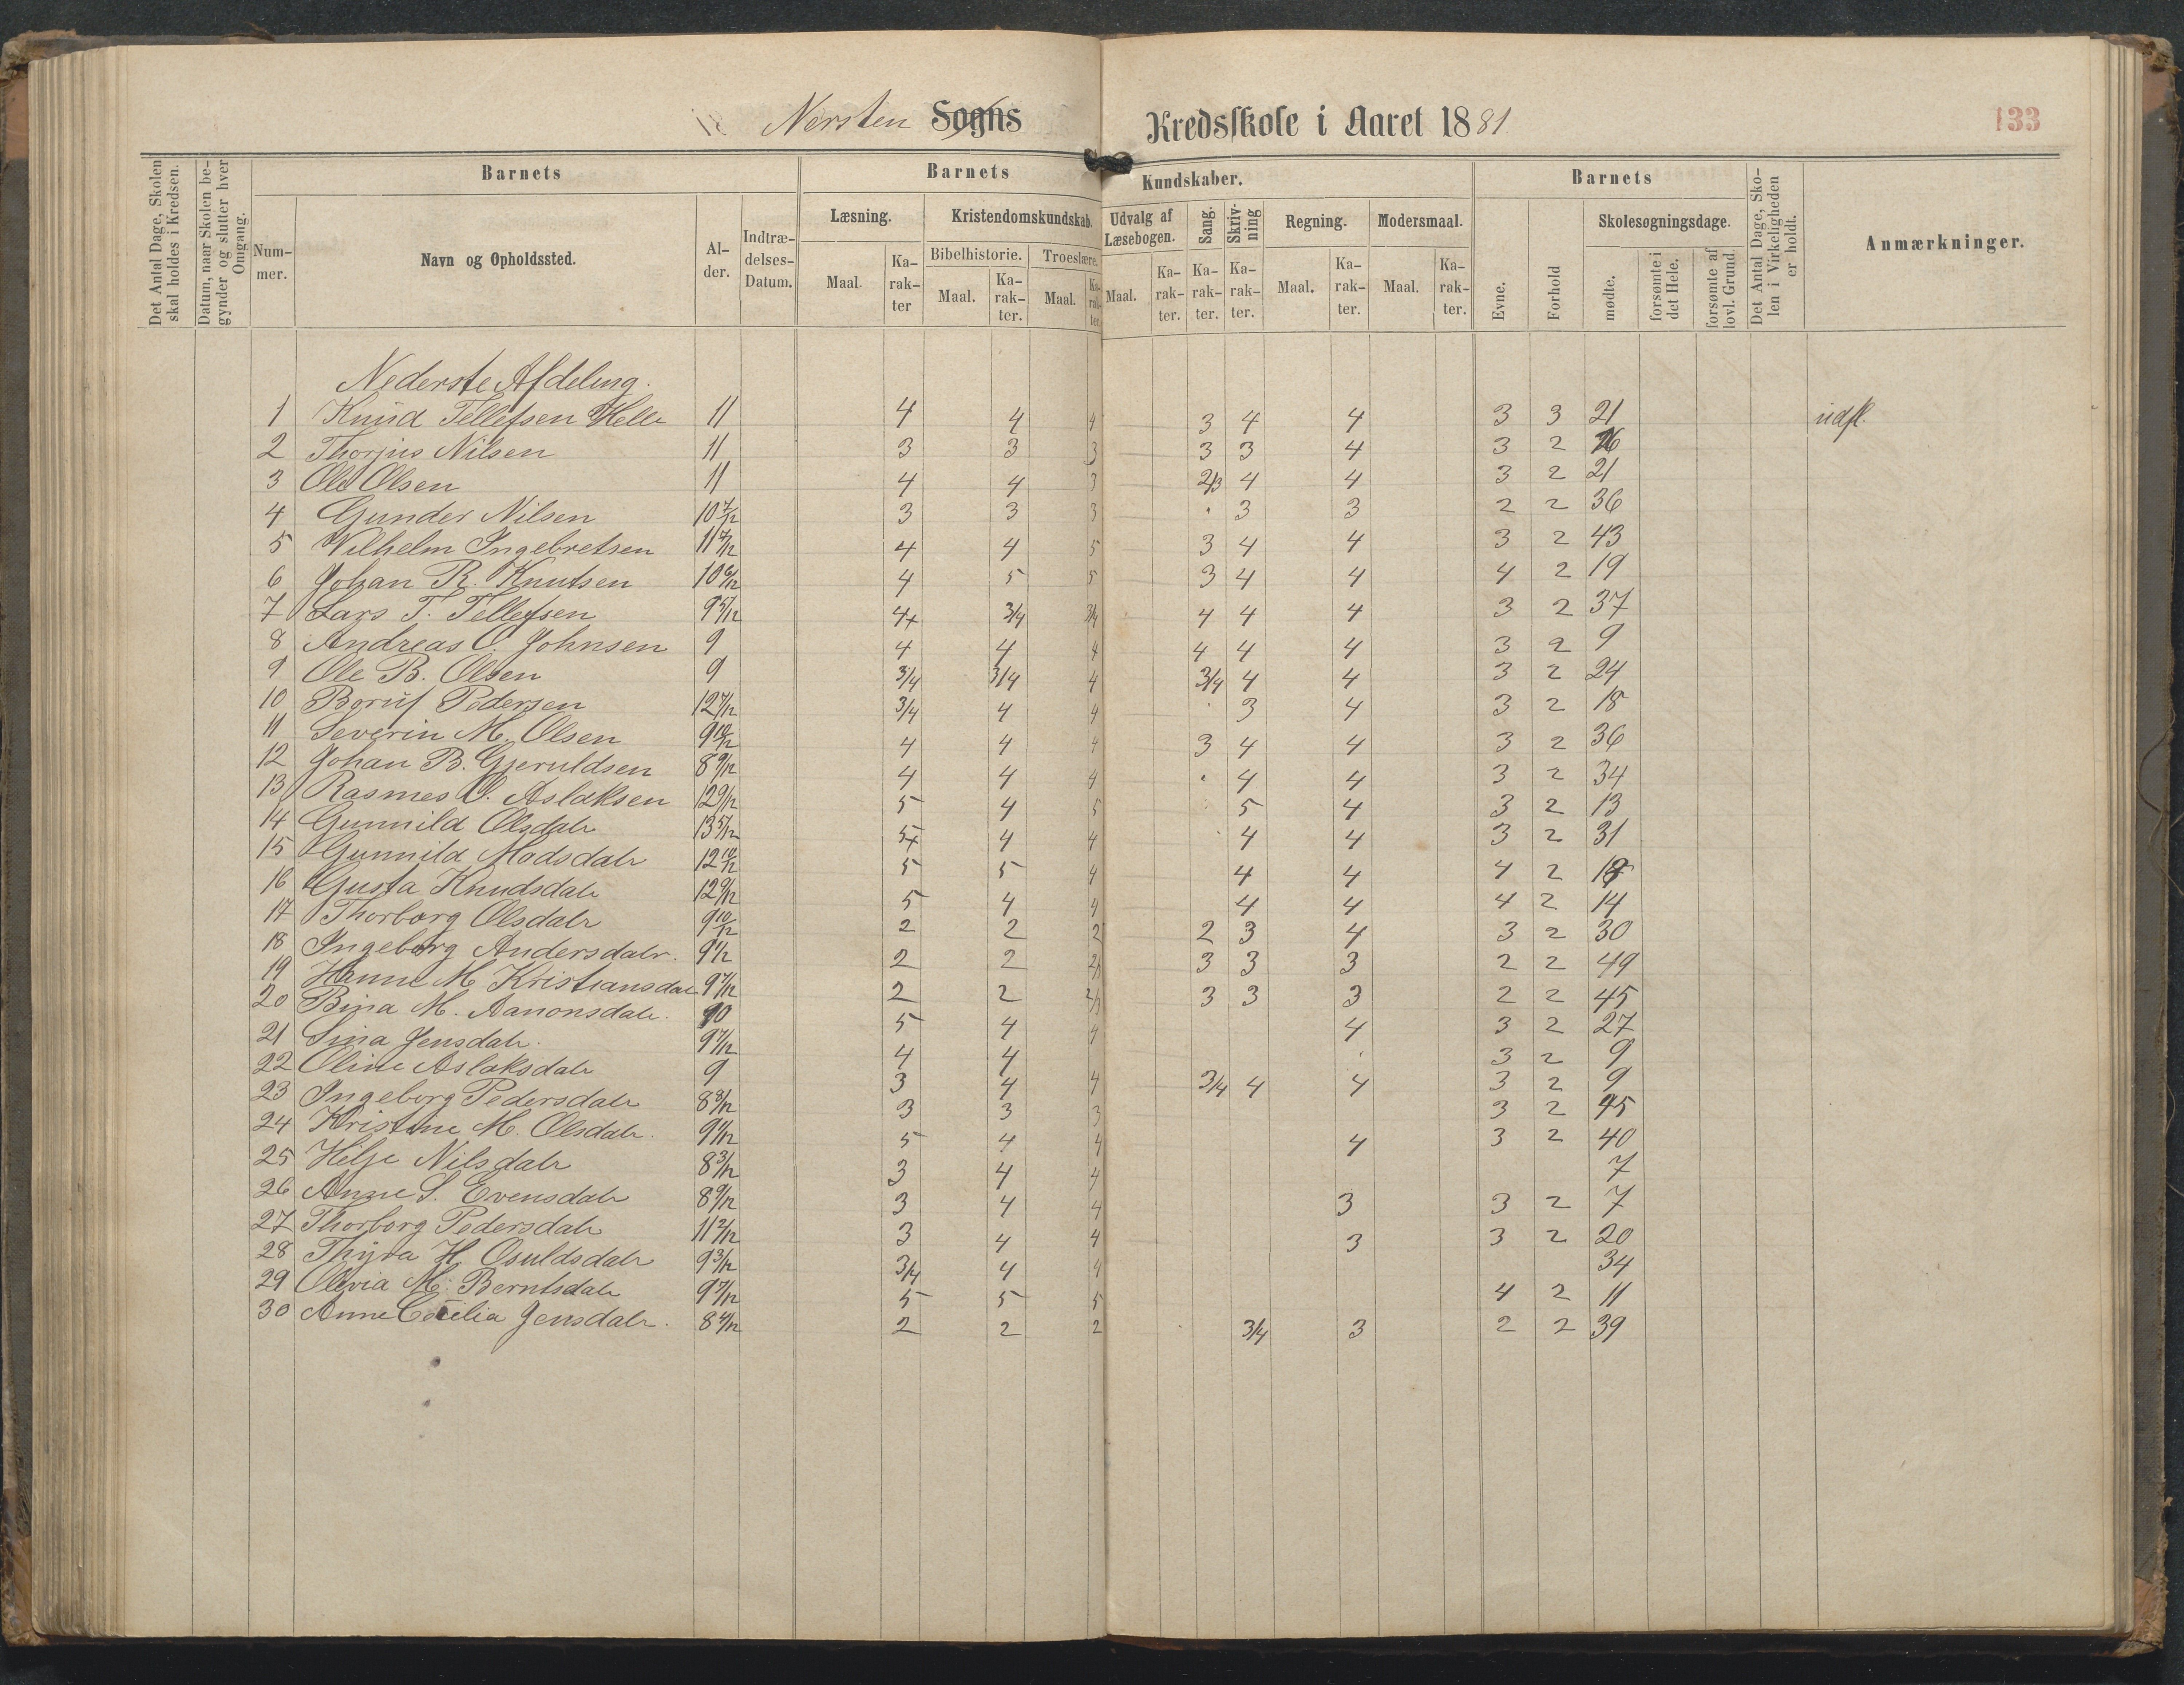 Nersten Sogns Kredsskole i Aaret 1881
133
Det Antal Dage, Skolen skal holdes i Kredsen.
Datum, naar Skolen begynder og slutter hver Omgang.
Barnets
Nummer.
Navn og Opholdssted.
Alder.
Indtrædelses-Datum.
Barnets Kundskaber.
Læsning. Kristendomskundskab. Udvalg af Læsebogen. Sang. Skrivning Regning. Modersmaal.
Bibelhistorie. Troeslære.
Maal. Karakter Maal. Karakter. Maal. Karakter. Maal. Karakter. Karakter. Karakter. Maal. Karakter. Maal. Karakter.
Barnets
Evne. Forhold Skolesøgningsdage.
mødte. forsømte i det Hele. forsømte af lovl. Grund.
Det Antal Dage, Skolen i Virkeligheden er holdt.
Anmærkninger.
Nederste Afdeling.
1 Knud Tellefsen Helle 11 4 4 4 3 4 4 3 3 21 udfl.
2 Thorjus Nilsen 11 3 3 3 3 3 4 3 2 26
3 Ole Olsen 11 4 4 3 2/3 4 4 3 2 21
4 Gunder Nilsen 10 7/12 3 3 3 3 3 2 2 36
5 Vilhelm Ingebretsen 11 7/12 4 4 5 3 4 4 3 2 43
6 Johan R. Knutsen 10 6/12 4 5 5 3 4 4 4 2 19
7 Lars T. Tellefsen 9 5/12 4+ 3/4 3/4 4 4 4 3 2 37
8 Andreas O. Johnsen 9 4 4 4 4 4 4 3 2 9
9 Ole B. Olsen 9 3/4 3/4 4 3/4 4 4 3 2 24
10 Boruf Pedersen 12 7/12 3/4 4 4 3 4 3 2 18
11 Severin M. Olsen 9 10/12 4 4 4 3 4 4 3 2 36
12 Johan B. Gjeruldsen 8 9/12 4 4 4 4 4 3 2 34
13 Rasmes O. Aslaksen 12 9/12 5 4 5 5 4 3 2 13
14 Gunnild Olsdatr 13 5/12 5+ 4 4 4 4 3 2 31
15 Gunnild Madsdatr 12 10/12 5 5 4 4 4 4 2
16 Gusta Knudsdatr 12 9/12 5 4 4 4 4 4 2 14
17 Thorborg Olsdatr 9 10/12 2 2 2 2 3 4 3 2 30
18 Ingeborg Andersdatr. 9 1/2 2 2 2/3 3 3 3 2 2 49
19 Hanne M Kristiansdatr 9 7/12 2 2 2/3 3 3 3 2 2 45
20 Bina M. Aanonsdatr. 10 5 4 4 4 3 2 27
21 Sina Jensdatr. 9 7/12 4 4 3 2 9
22 Oline Aslaksdatr 9 3 4 4 3/4 4 4 3 2 9
23 Ingeborg Pedersdatr 8 8/12 3 3 3 3 2 45
24 Kristine M. Olsdatr. 9 4/12 5 4 4 4 3 2 40
25 Helje Nilsdatr 8 3/12 3 4 4 7
26 Anne S. Evensdatr 8 9/12 3 4 4 3 3 2 7
27 Thorborg Pedersdatr 11 2/12 3 4 4 3 3 2 20
28 Thyra H. Osuldsdatr 9 3/12 3/4 4 4 34
29 Olevia M. Berntsdatr 9 7/12 5 5 5 4 2 11
30 Anne Cecilia Jensdatr. 8 4/12 2 2 2 3/4 3 2 2 39